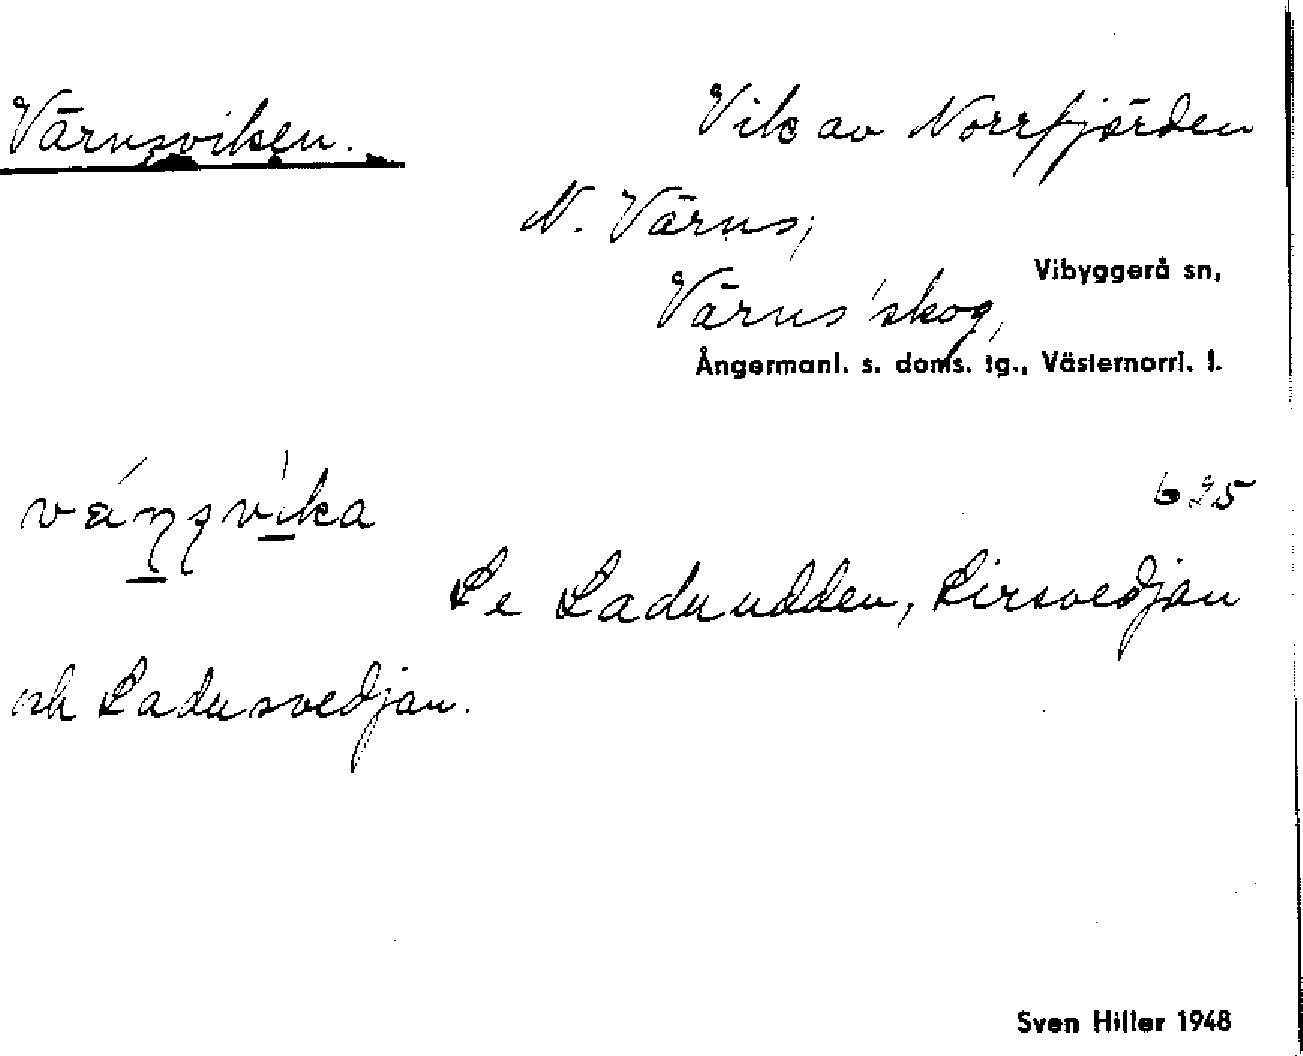 Värnsviken.
Vik av Norrfjärden
N. Värns,
Vibyggerå sn,
Värns'skog,
Ångermanl. s. doms. tg., Västernorrl. l.
625
Se Laduudden, Lirsvedjan
och Ladusvedjan.
Sven Hiller 1948